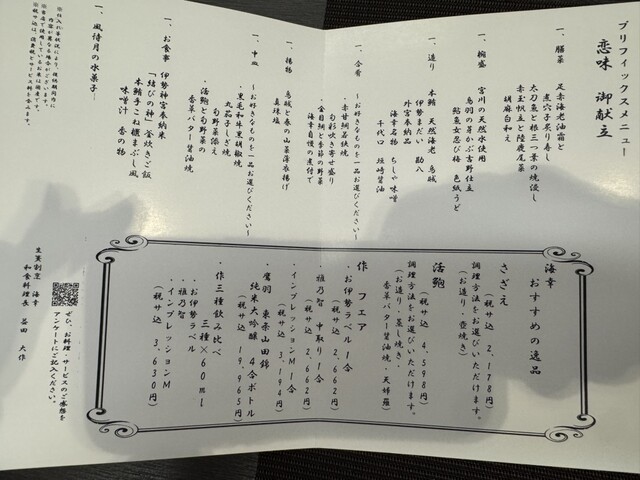 プリフィックスメニュー
恋味 御献立
一、膳菜
足赤海老油霜と
煮穴子炙り寿し
太刀魚と根三つ葉の焼浸し
赤玉帆立と陸鹿尾菜
胡麻白和え
一、椀盛
宮川の天然水使用
鳥羽の芽かぶ吉野仕立
鮎魚女忍び梅 色紙うど
一、造り
本鮪 天然海老 鳥城
伊勢まだい 勘八
外宮奉納品
海幸名物 ちしゃ味噌
千代口 垣崎醤油
一、合肴
〜お好きなものを一品お選びください〜
・赤甘鯛若狭焼
旬彩炊き寄せ盛り
・金目鯛と季節の野菜
海幸自慢の煮付で
一、揚物
鳥城と春の山菜薄衣揚げ
真珠塩
一、中皿
〜お好きなものを一品お選びください〜
・黒毛和牛黒胡椒焼
丸茄子しぎ焼
旬野菜添え
・活鮑と旬野菜の
香草バター醤油焼
一、お食事
伊勢神宮奉納米
「結びの神」釜炊きご飯
本鮪手こね櫃まぶし風
味噌汁 香の物
一、風待月の水菓子
※仕入れ等状況により、提供期間内に
内容が異なる場合がございます。
※当店で使用しているお米は国産です。
※税サ込は、消費税・サービス料を含みます。
海幸 おすすめの逸品
さざえ
(税サ込 2,178円)
調理方法をお選びいただけます。
(お造り・壺焼き)
活鮑
(税サ込 4,598円)
調理方法をお選びいただけます。
(お造り・蒸し焼き・
香草バター醤油焼・天婦羅)
作 フェア
・お伊勢ラベル1合
(税サ込 2,662円)
・雅乃智 中取り1合
(税サ込 2,662円)
・インプレッションM1合
(税サ込 3,194円)
・鷹羽 東条山田錦
純米大吟醸 4合ボトル
(税サ込 19,965円)
・作三種飲み比べ
三種×60ml
・お伊勢ラベル
・雅乃智
・インプレッションM
(税サ込 3,630円)
ぜひ、お料理・サービスのご感想を
アンケートにご記入ください。
生簀割烹 海幸
和食料理長 益田 大作